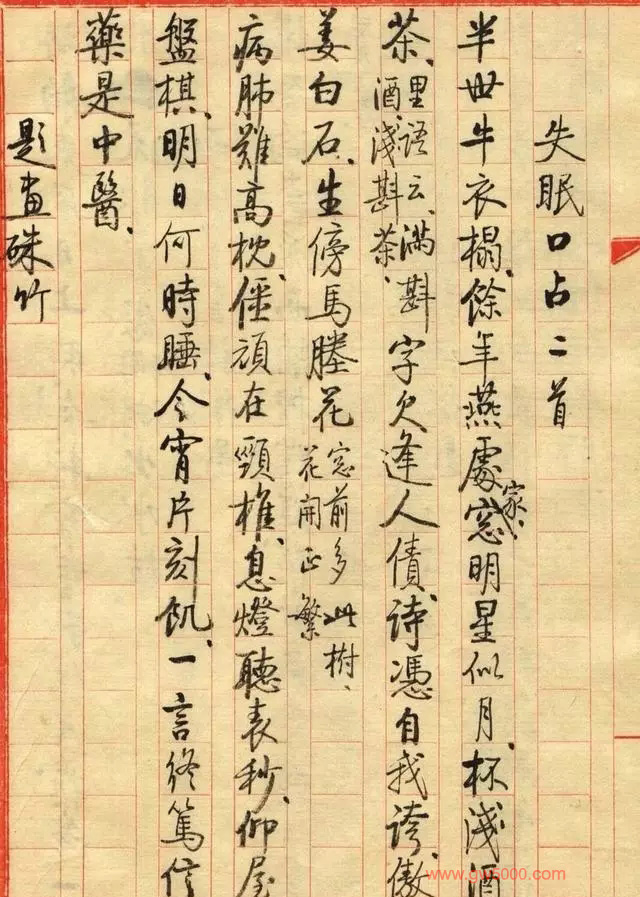 失眠口占二首
半世牛衣榻、餘年燕處家、窓明星似月、杯淺酒
茶、里語云、滿斟酒、淺斟茶、字欠逢人債、詩憑自我誇、傲
姜白石、生傍馬塍花窓前多此樹、花開正繁
病肺難高枕、僵頑在頸椎、息燈聽表秒、仰屋
盤棋、明日何時睡、今宵片刻飢、一言終篤信
藥是中醫、
題畫硃竹
www.gw5000.com